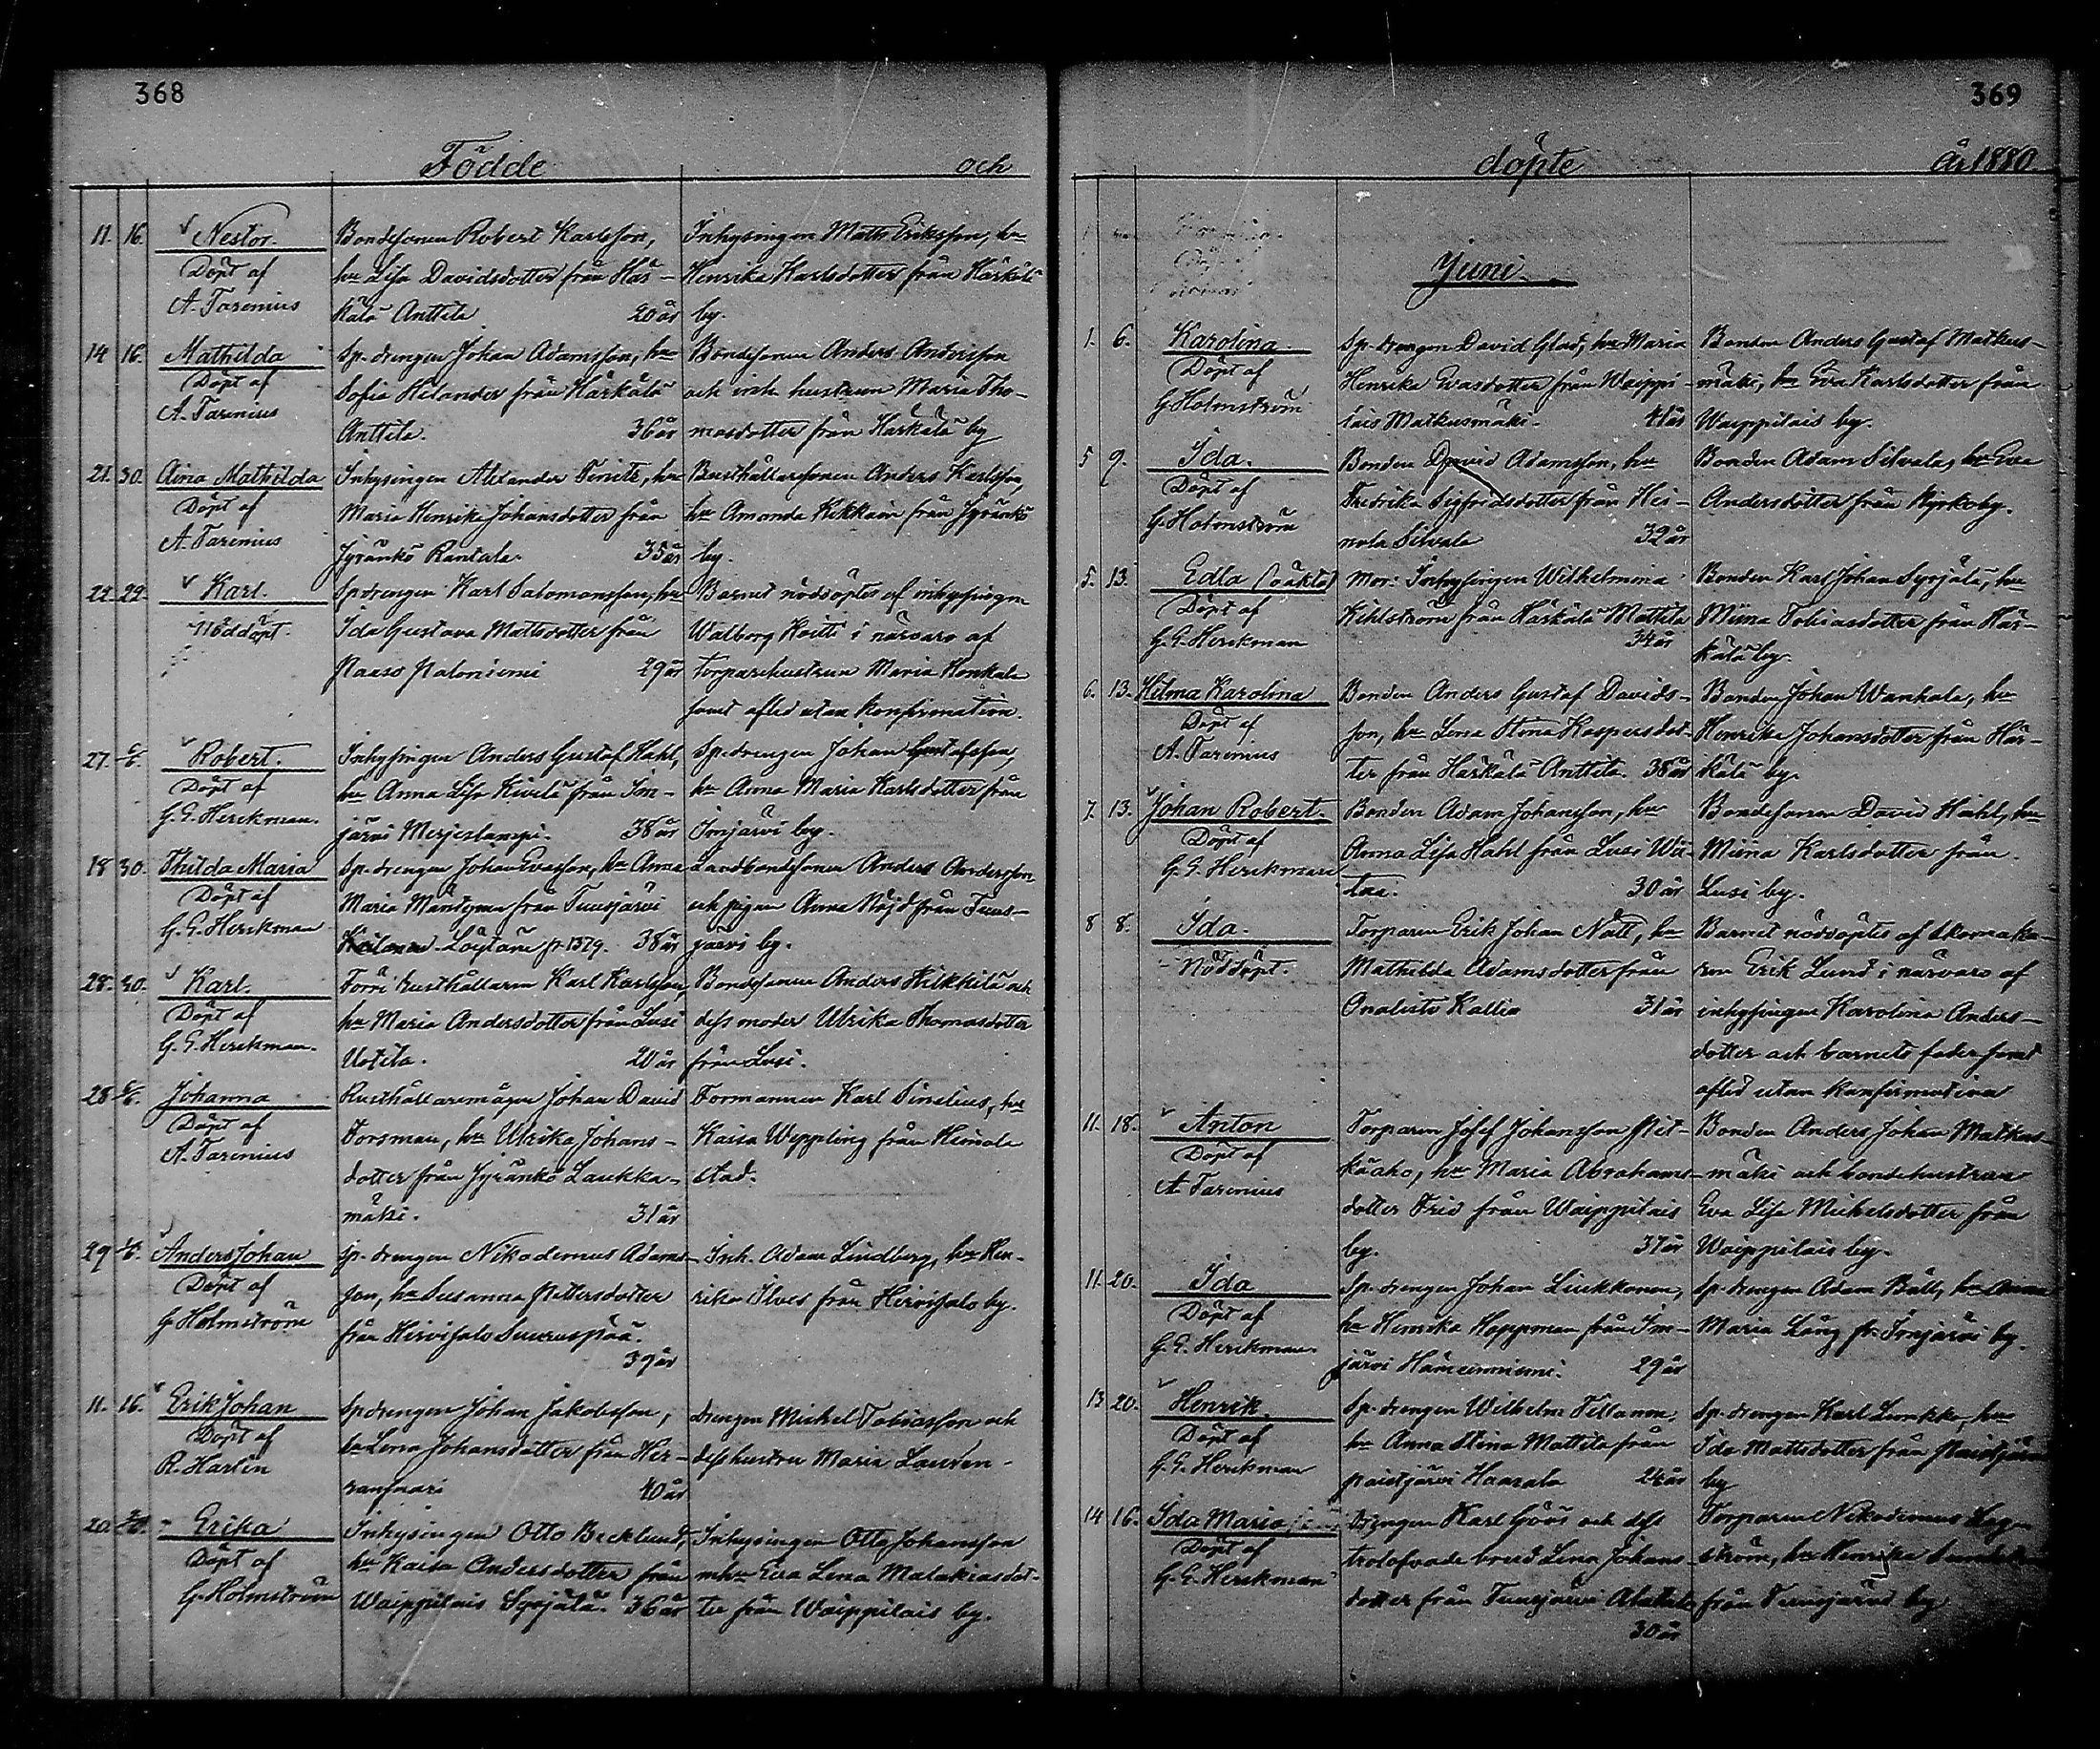 368
Födde och
11. 16. Nestor. Bondesonen Robert Karlsson, Inhysingen Matts Eriksson, hu
Döpt af hu Lisa Davidsdotter från Här- Henrika Karlsdotter från Härkälä
A. Tarenius kälä Anttila 20 år by.
14 16. Mathilda Sp. drengen Johan Adamsson, hu Bondesonen Anders Andersson
Döpt af Sofia Helander från Härkälä och hustrun Maria Tho-
A. Tarenius Anttila. 36 år masdotter från Härkälä by
21. 30. Aina Mathilda Inhysingen Alexander hu Rusthållaresonen Anders Karlsson,
Döpt af Maria Henrika Johansdotter från hu Amanda från Jyränkö
A. Tarenius Jyränkö Rantala. 35 år by.
29. Karl. Sp. drengen Karl Salomonsson, hu Barnet nöddöptes af inhysingen
Nöddöpt. Ida Gustava Mattsdotter från Walborg Koitti i närvaro af
29 år torparehustrun Maria Honkala
samt afled utan konfirmation.
27. Robert. Inhysingen Anders Gustaf Hahl, Sp. drengen Johan Gustafsson,
Döpt af hu Anna Lisa Kivelä från Im- hu Anna Maria Karlsdotter från
G. E. Herckman. järvi 38 år Imjärvi by.
18 30. Thilda Maria Sp. drengen Johan Evasson, hu Anna Landbondesonen Anders Andersson
Döpt af Maria Mäntynen från Tuusjärvi och pigan Anna Nöjd från Tuus-
G. E. Herckman 38 år järvi by.
28. 30. Karl. Förre rusthållaren Karl Karlsson, Bondesonen Anders Hilkkilä och
Döpt af hu Maria Andersdotter från Lusi dess moder Ulrika Thomasdotter
G. E. Herckman. Uotila. 20 år från Lusi.
28 6/6. Johanna Rusthållaremågen Johan David Formannen Karl Sinelius, hu
Döpt af Forsman, hu Ulrika Johans- Kaisa Weppling från Heinola
A. Tarenius dotter från Jyränkö Laukka- stad.
mäki. 31 år
29 Anders Johan Sp. drengen Nikodemus Adams- Inh. Adam Lindberg, hu Hen-
Döpt af son, hu Susanna Pettersdotter rika Ilves från Hirvisalo by.
G. Holmström från Hirvisalo Suuruspää.
39 år
11. 16. Erik Johan Sp drengen Johan Jakobsson, drengen Michel Tobiasson och
Döpt af hu Lena Johansdotter från Her- dess hustru Maria
R. Harlin 40 år
20. Erika Inhysingen Otto Becklund, Inhysingen Otto Johansson
Döpt af hu Kaisa Andersdotter från m hu Eva Lena Malakiasdot-
G. Holmström Waippilais Syrjälä. 36 år ter från Waippilais by.
369
döpte År 1880.
Juni
1. 6. Karolina Sp. drengen David Glad, hu Maria Bonden Anders Gustaf Matkus-
Döpt af Henrika Evasdotter från Waippi- mäki, hu Eva Karlsdotter från
G Holmström lais Matkusmäki. 41 år Waippilais by.
5 9. Ida. Bonden David Adamsson, hu Bonden Adam Silvala, hu Eva
Döpt af Fredrika Sigfridsdotter från Hei- Andersdotter från Kyrkoby.
G. Holmström nola Silvala 32 år
5. 13. Edla (oäkta) Mor: Inhysingen Wilhelmina Bonden Karl Johan Syrjälä, hu
Döpt af Kihlström från Härkälä Mattila Miina Tobiasdotter från Här-
G. E. Herckman 34 år kälä by.
6. 13. Hilma Karolina Bonden Anders Gustaf Davids- Bonden Johan Wanhala, hu
Döpt af son, hu Lena Stina Kaspersdot- Henrika Johansdotter från Här-
A. Tarenius ter från Härkälä Anttila. 38 år kälä by.
7. 13. Johan Robert. Bonden Adam Johansson, hu Bondesonen David Hahl, hu
Döpt af Anna Lisa Hahl från Lusi Wä- Miina Karlsdotter från
G. E. Herckman 30 år Lusi by.
8 8. Ida. Torparen Erik Johan Nätt, hu Barnet nöddöptes af skomaka-
Nöddöpt. Mathilda Adamsdotter från ren Erik Lund i närvaro af
Onalisto Kallio 31 år inhysingen Karolina Anders-
dotter och barnets fader samt
afled utan konfirmation
11. 18. Anton Torparen Josef Johansson Pit- Bonden Anders Johan Matkus-
Döpt af käaho, hu Maria Abrahams- mäki och bondehustrun
A Tarenius dotter Frid från Waippilais Eva Lisa Michelsdotter från
by. 37 år Waippilais by.
11. 20. Ida Sp. drengen Johan Liukkonen, Sp. drengen Adam Båll, hu Anna
Döpt af hu Henrika Hoppman från Im- Maria Lång fr. Imjärvi by.
G. E. Herckman. järvi Hämeenniemi. 29 år
13 20. Henrik. Sp. drengen Wilhelm Tillanen, Sp. drengen Karl hu
Döpt af hu Anna Stina Mattila från Ida Mattsdotter från Paistjärvi
G. E. Herckman Paistjärvi Haarala 24 år by
14 16. Ida Maria Drengen Karl Göös och dess Torparen Nikodemus
Döpt af trolofvade brud Lena Johans- ström, hu Henrika
G. E. Herckman dotter från Tuusjärvi från Tuusjärvi by
30 år